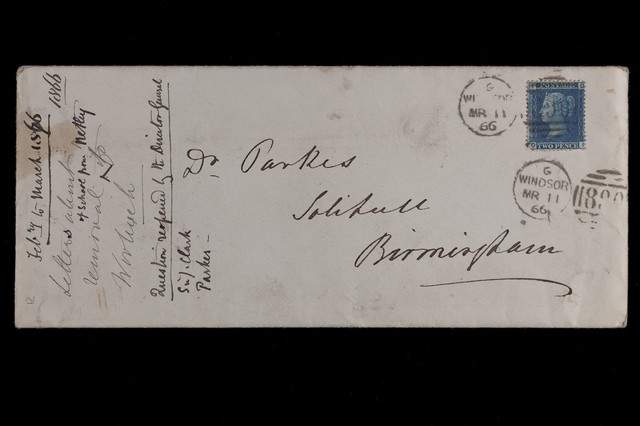 Feby to March 1866
1866
Letters about
removal of School from Netley
to
Woolwich
Question reopened by the Director General
Sir J. Clark
Parkes -
Dr Parkes
Solihull
Birmingham
G
WINDSOR
MR 11
66
POSTAGE
TWO PENCE
G
WINDSOR
MR 11
66